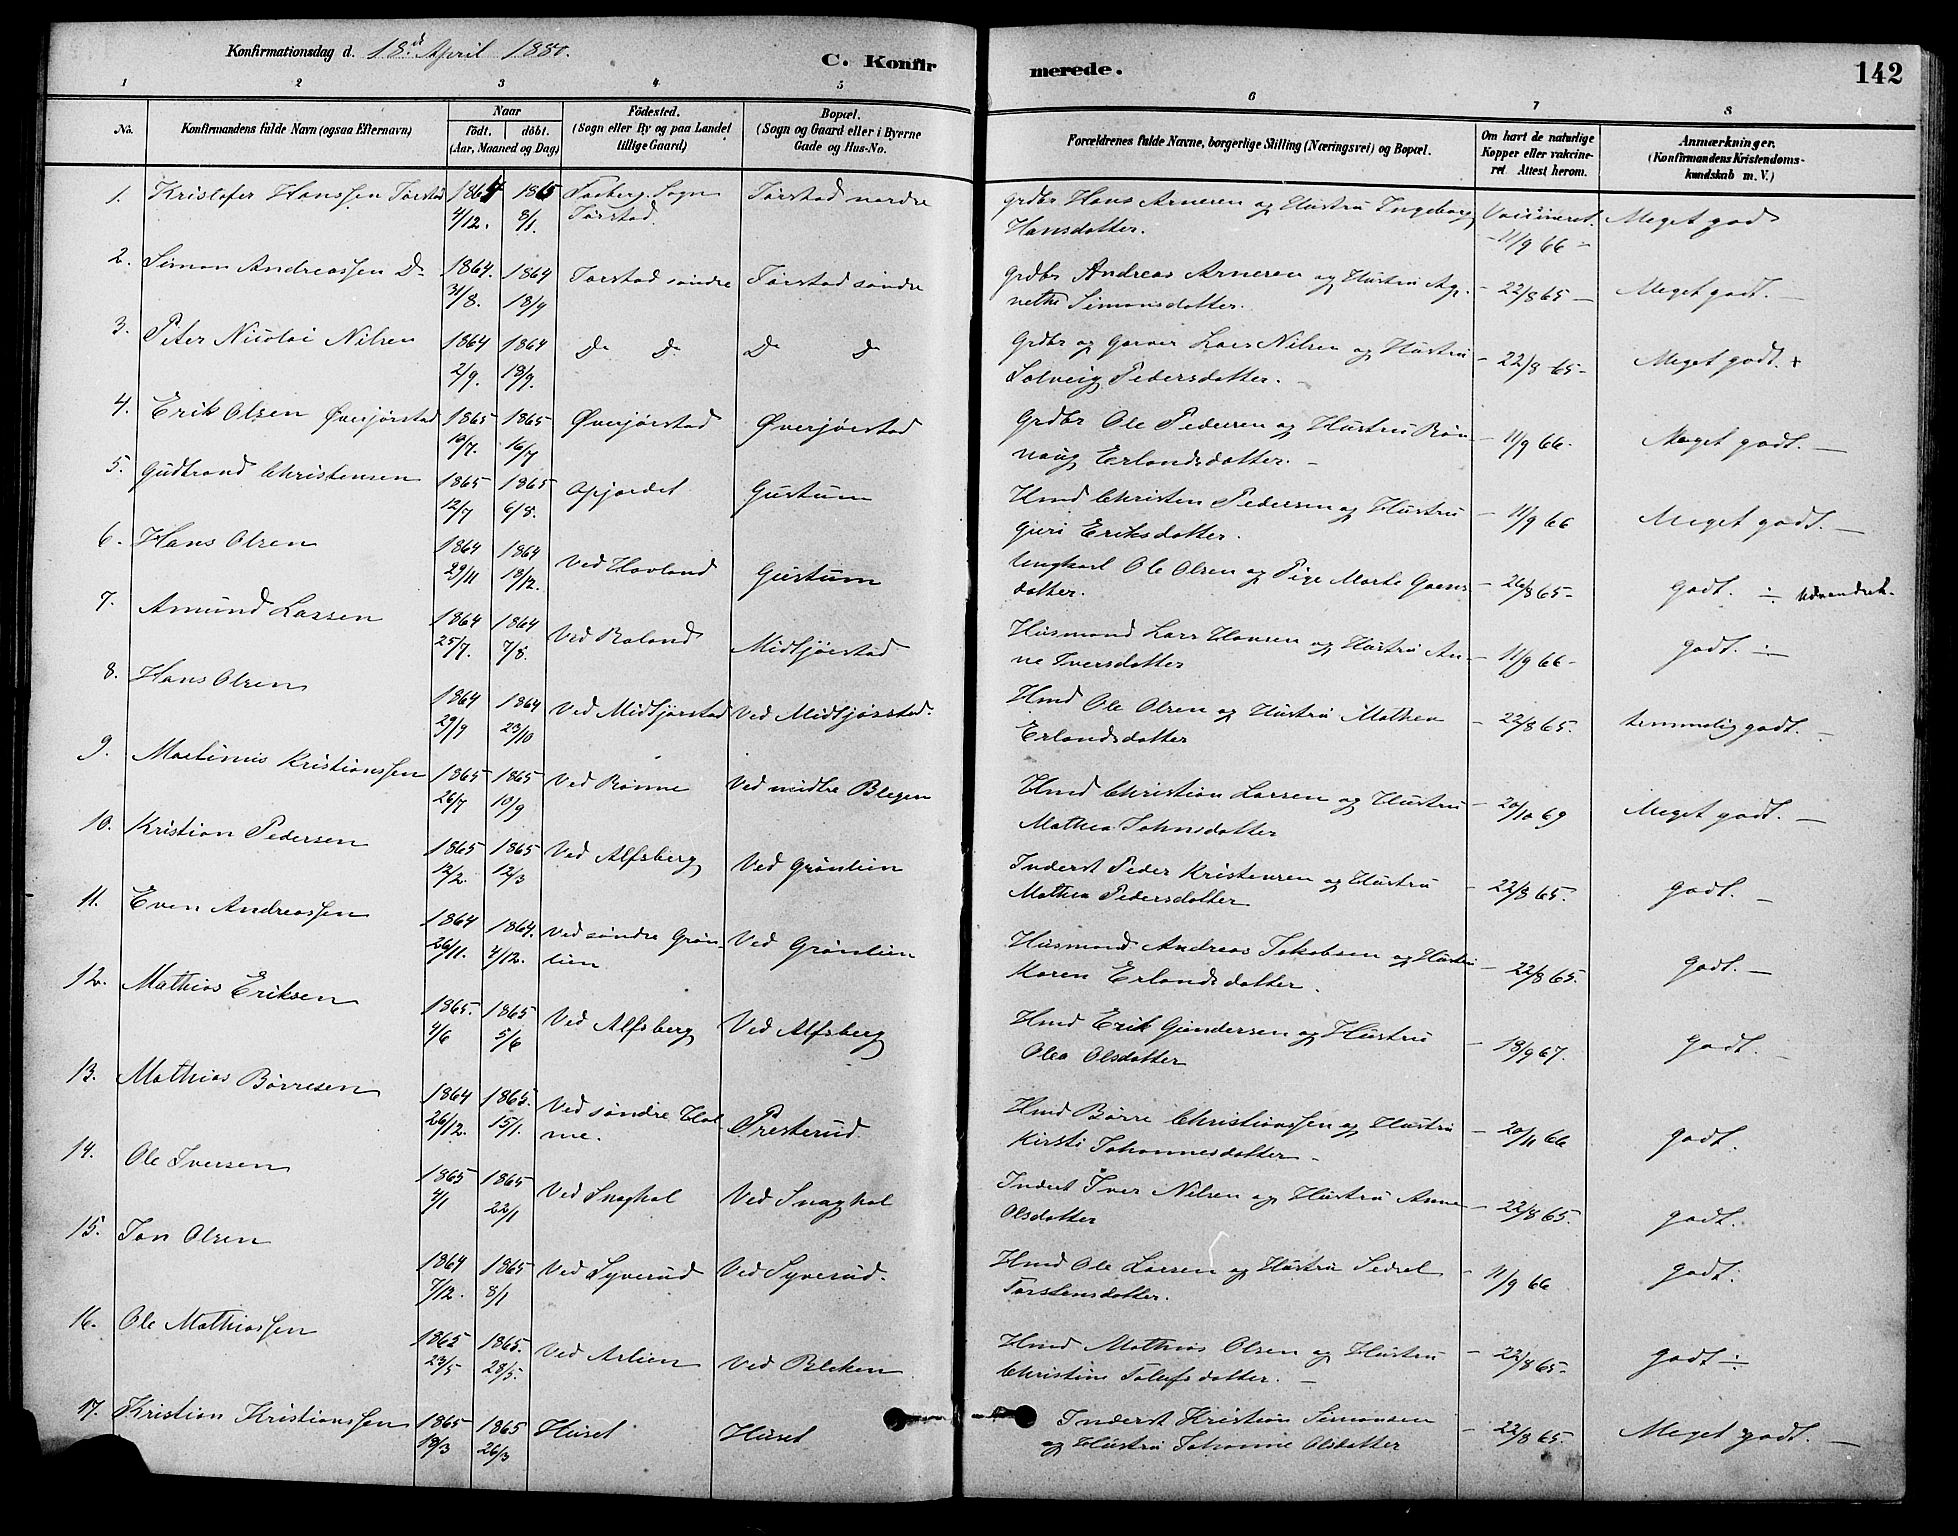 Konfirmationsdag d. 18d April 1880.
C. Konfirmerede.
142
1 2 3 4 5 6 7 8
No.
Konfirmandens fulde Navn (ogsaa Efternavn)
Naar
födt. döbt.
(Aar, Maaned og Dag)
Födested.
(Sogn eller By og paa Landet
tillige Gaard)
Bopæl.
(Sogn og Gaard eller i Byerne
Gade og Hus-No.
Forældrenes fulde Navne, borgerlige Stilling (Næringsvei) og Bopæl.
Om havt de naturlige
Kopper eller vakcine-
ret. Attest herom.
Anmærkninger.
(Konfirmandens Kristendoms-
kundskab m. V.)
1. Kristofer Hanssen Torstad 1864 1865 Faaberg Sogn Torstad nordre Grdbr Hans Arnesen og Hustru Ingeborg Vaccineret Meget god
4/12. 8/1. Torstad. Hansdatter. - 11/9 66 -
2. Simon Andreassen Do 1864. 1864 Torstad søndre Torstad søndre Grdbr Andreas Arnesen og Hustru Ag- - 22/8 65 - Meget godt. -
31/8. 18/9 nethe Simonsdatter.
3. Peter Nicolai Nilsen 1864 1864 Do Do Do Do Grdbr og Garver Lars Nilsen og Hustru - 22/8 65 - Meget godt +
2/9. 18/9. Solveig Pedersdatter. -
4. Erik Olsen Øverjørstad 1865 1865 Øverjørstad Øverjørstad Grdbr Ole Pedersen og Hustru Røn- - 11/9 66. Meget godt. -
10/7. 16/7 naug Erlandsdatter. -
5. Gudbrand Christensen 1865 1865 Opjordet Gustum Hmd Christen Pedersen og Hustru - 11/9 66 Meget godt. -
12/7 6/8. Guri Eriksdatter.
6. Hans Olsen 1864 1864 Ved Hovland Gustum Ungkarl Ole Olsen og Pige Marte - 26/8 65 - godt. ÷ Udvandret.
29/11 18/12. datter.
7. Amund Larsen 1864 1864 Ved Roland Midtjørstad Husmand Lars Hansen og Hustru An- - 11/9 66 - godt. ÷
25/7. 7/8. ne Iversdatter
8. Hans Olsen 1864 1864 Ved Midtjørstad Ved Midtjørstad. Hmd Ole Olsen og Hustru Mathea - 22/8 65. temmelig godt. -
29/9 23/10 Erlandsdatter
9. Martinius Kristianssen 1865 1865 Ved Rønne Ved midtre Blegen Hmd Christian Larsen og Hustru - 20/10 69 Meget godt. -
26/7 10/9 Mathea Johnsdatter
10. Kristian Pedersen 1865 1865 Ved Alfsberg Ved Grønlien Inderst Peder Kristensen og Hustru - 22/8 65. godt. -
12/2. 12/3 Mathea Pedersdatter
11. Even Andreassen 1864 1864. Ved søndre Grøn- Ved Grønlien Husmand Andreas Jakobsen og Hustru - 22/8 65. godt. -
26/11. 4/12. lien Karen Erlandsdatter.
12. Mathias Eriksen 1865. 1865 Ved Alfsberg Ved Alfsberg Hmd Erik Gundersen og Hustru - 18/9 67. godt. -
4/6 5/6 Olea Olsdatter
13. Mathias Børresen 1864 1865. Ved søndre Hol- Presterud. Hmd Børre Christianssen og Hustru - 20/11 66 godt.
26/12. 15/1. me. Kirsti Johannesdatter -
14. Ole Iversen 1865 1865 Ved Snaghol Ved Snaghol Inderst Iver Nilsen og Hustru Anne - 22/8 65. godt.
4/1 22/1 Olsdatter
15. Jon Olsen 1864 1865 Ved Syverud Ved Syverud. Hmd Ole Larsen og Hustru Sedsel - 11/9 66 godt.
7/12. 8/1 Torstensdatter.
16. Ole Mathiassen 1865 1865. Ved Aslien Ved Bleken Hmd Mathias Olsen og Hustru - 22/8 65- godt ÷
23/5 28/5. Christine Tolufsdatter. -
17. Kristian Kristianssen 1865 1865 Huset Huset Inderst Kristian Simonsen - 22/8 65. Meget godt. -
19/3 26/3 og Hustru Johanne Olsdatter